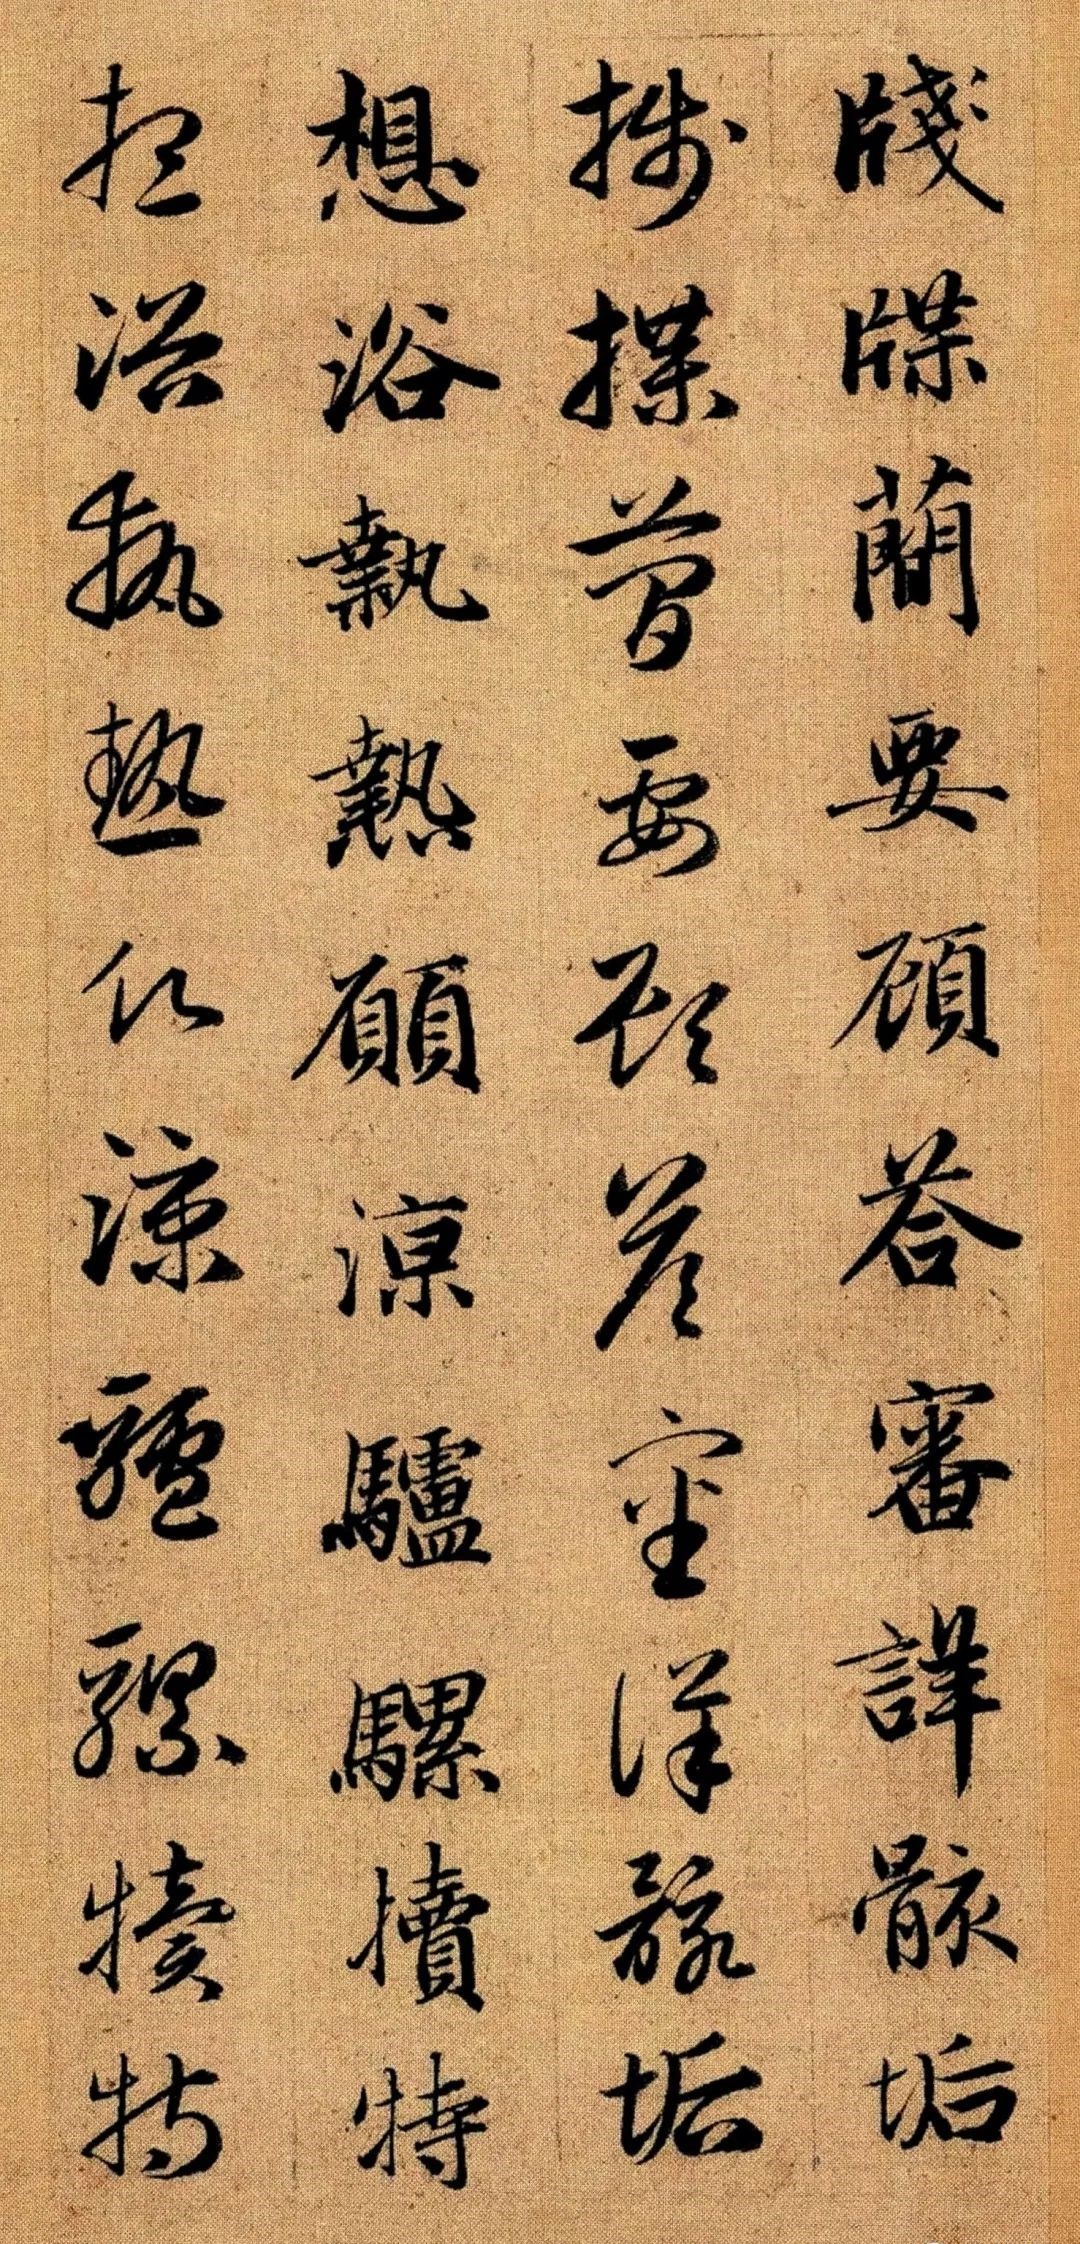 牋牒蕳要顧荅審詳骸垢
牋牒蕳要顧荅審詳骸垢
想浴執熱願涼驢騾犢特
想浴執熱願涼驢騾犢特